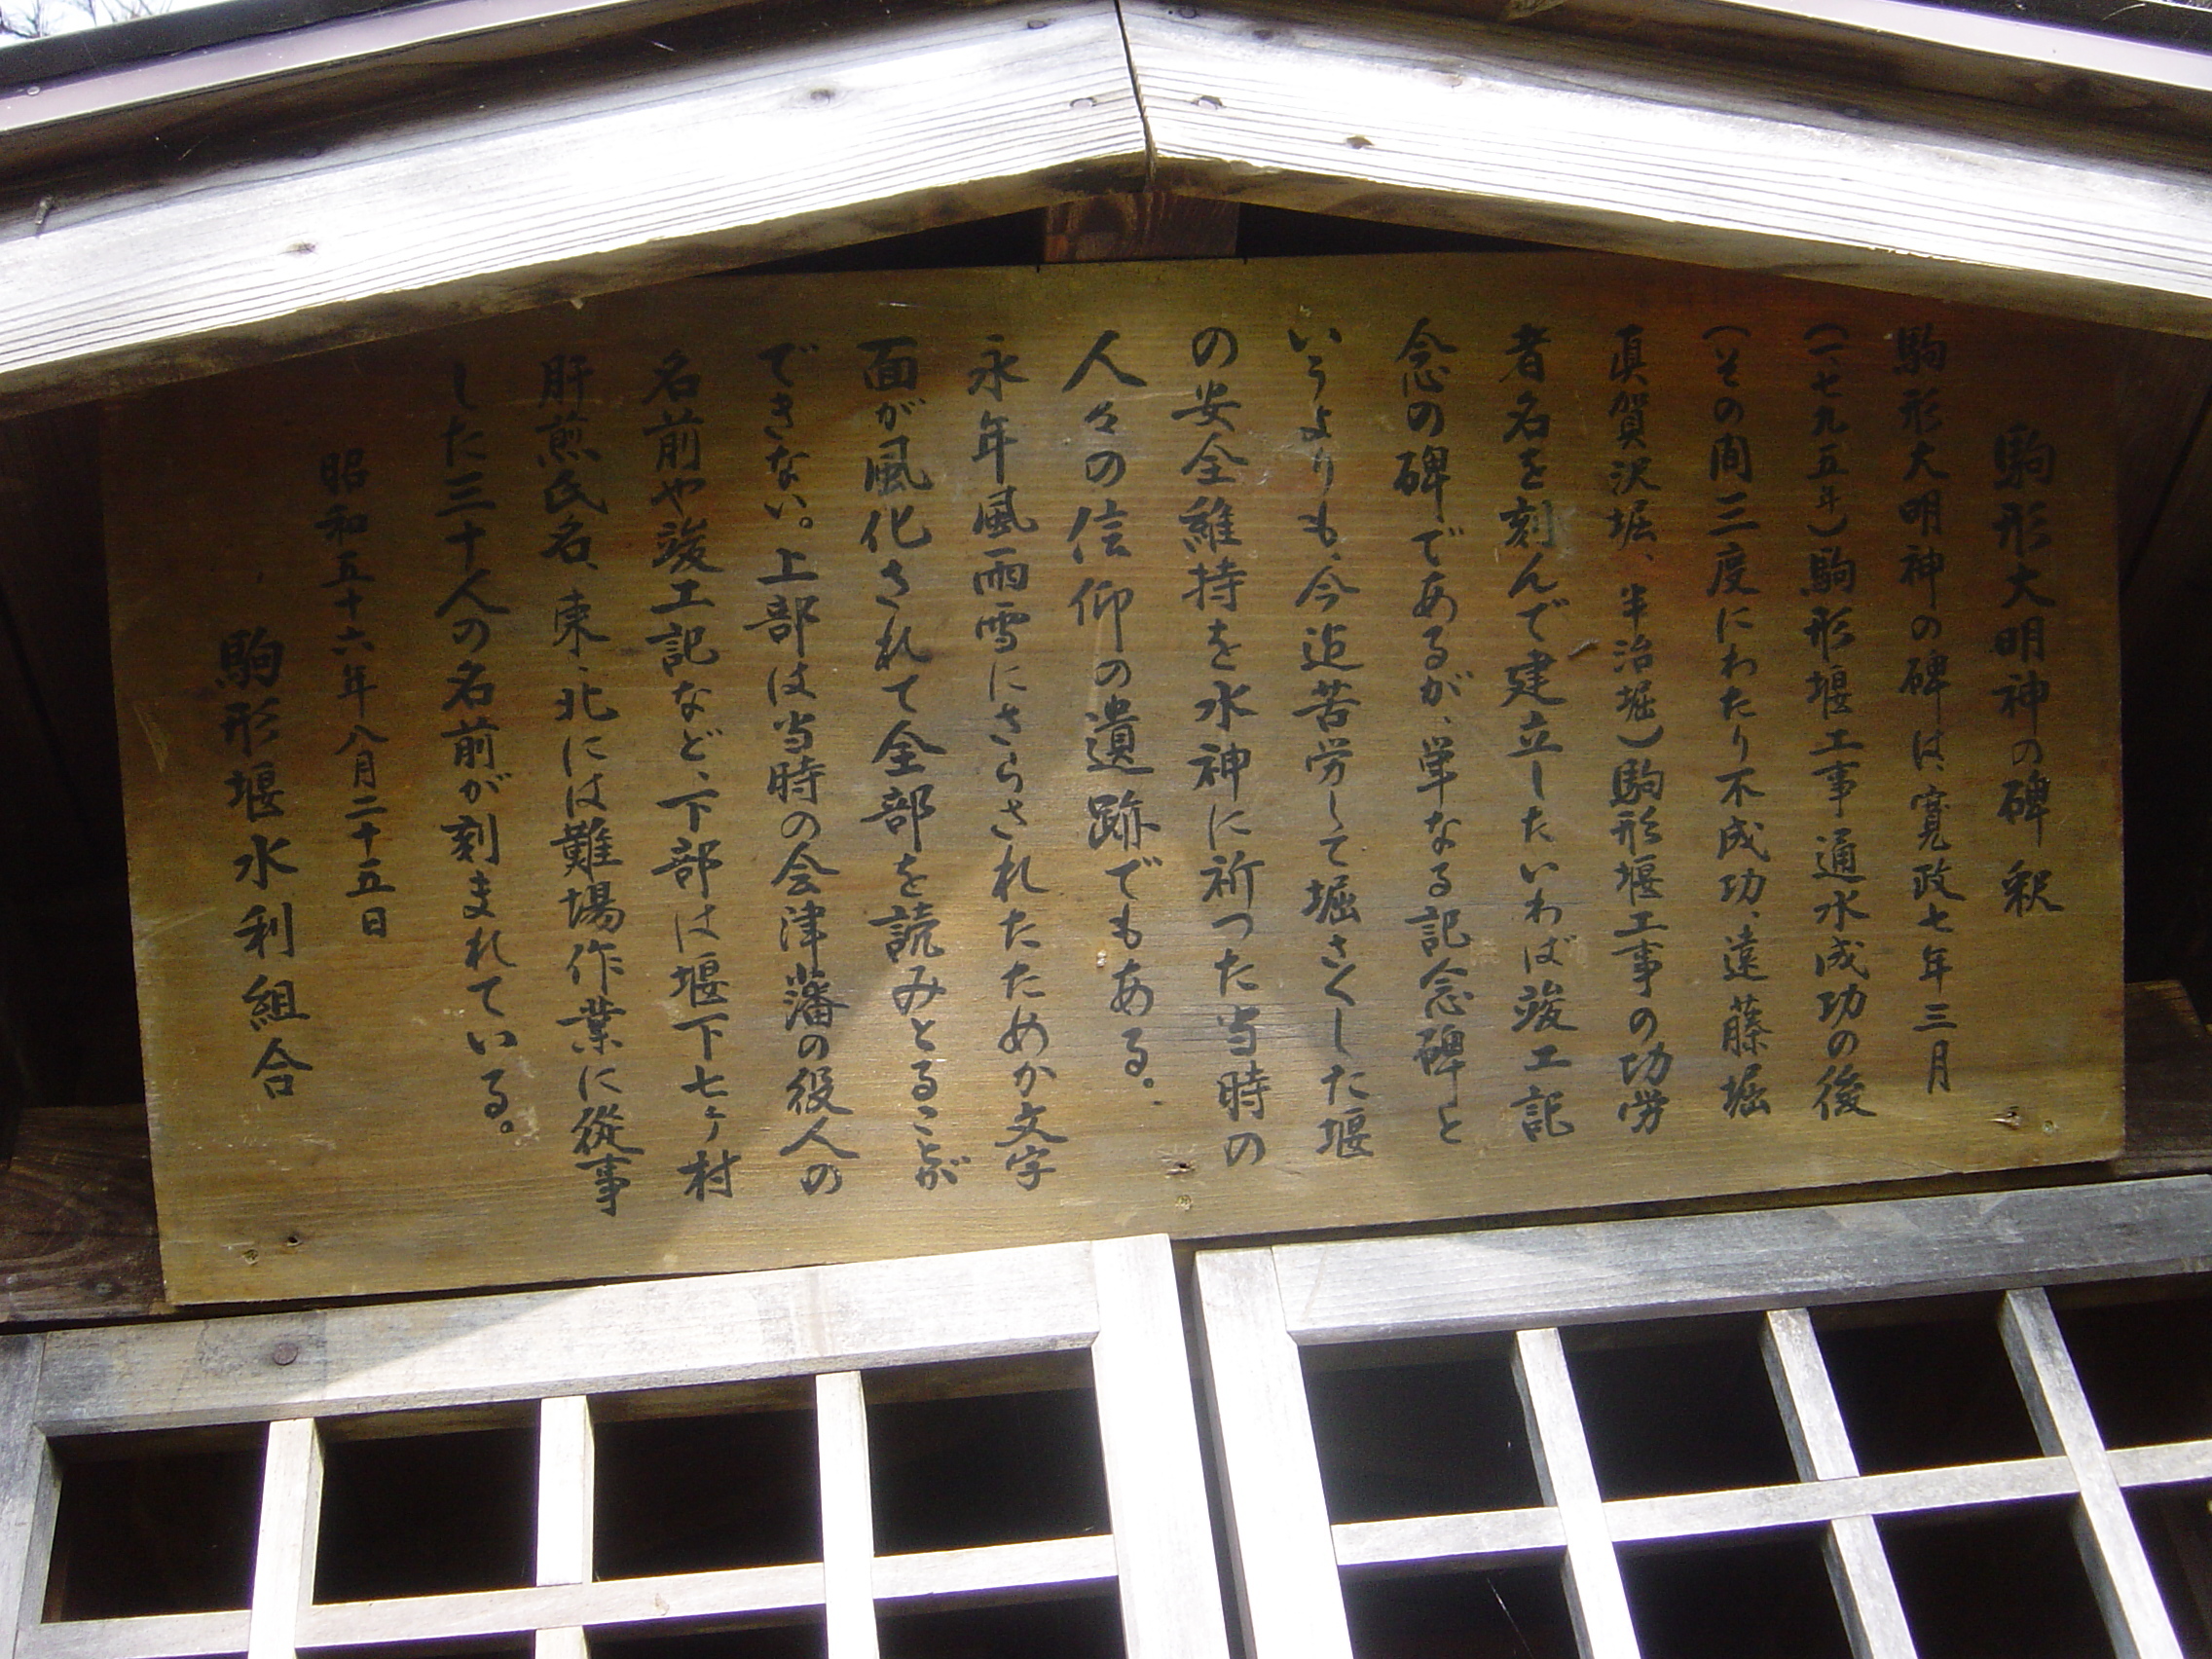 駒形大明神の碑釈
駒形大明神の碑は、寛政七年三月
(一七九五年)駒形堰工事通水成功の後
(その間三度にわたり不成功、遠藤堀
眞賀沢堀、半治堀)駒形堰工事の功労
者名を刻んで建立したいわば竣工記
念の碑であるが、単なる記念碑と
いうよりも、今迠苦労して堀さくした堰
の安全維持を水神に祈った当時の
人々の信仰の遺跡でもある。
永年風雨雪にさらされたためか文字
面が風化されて全部を読みとることが
できない。上部は当時の会津藩の役人の
名前や竣工記など、下部は堰下七ヶ村
肝煎氏名、東、北には難場作業に従事
した三十人の名前が刻まれている。
昭和五十六年八月二十五日
駒形堰水利組合